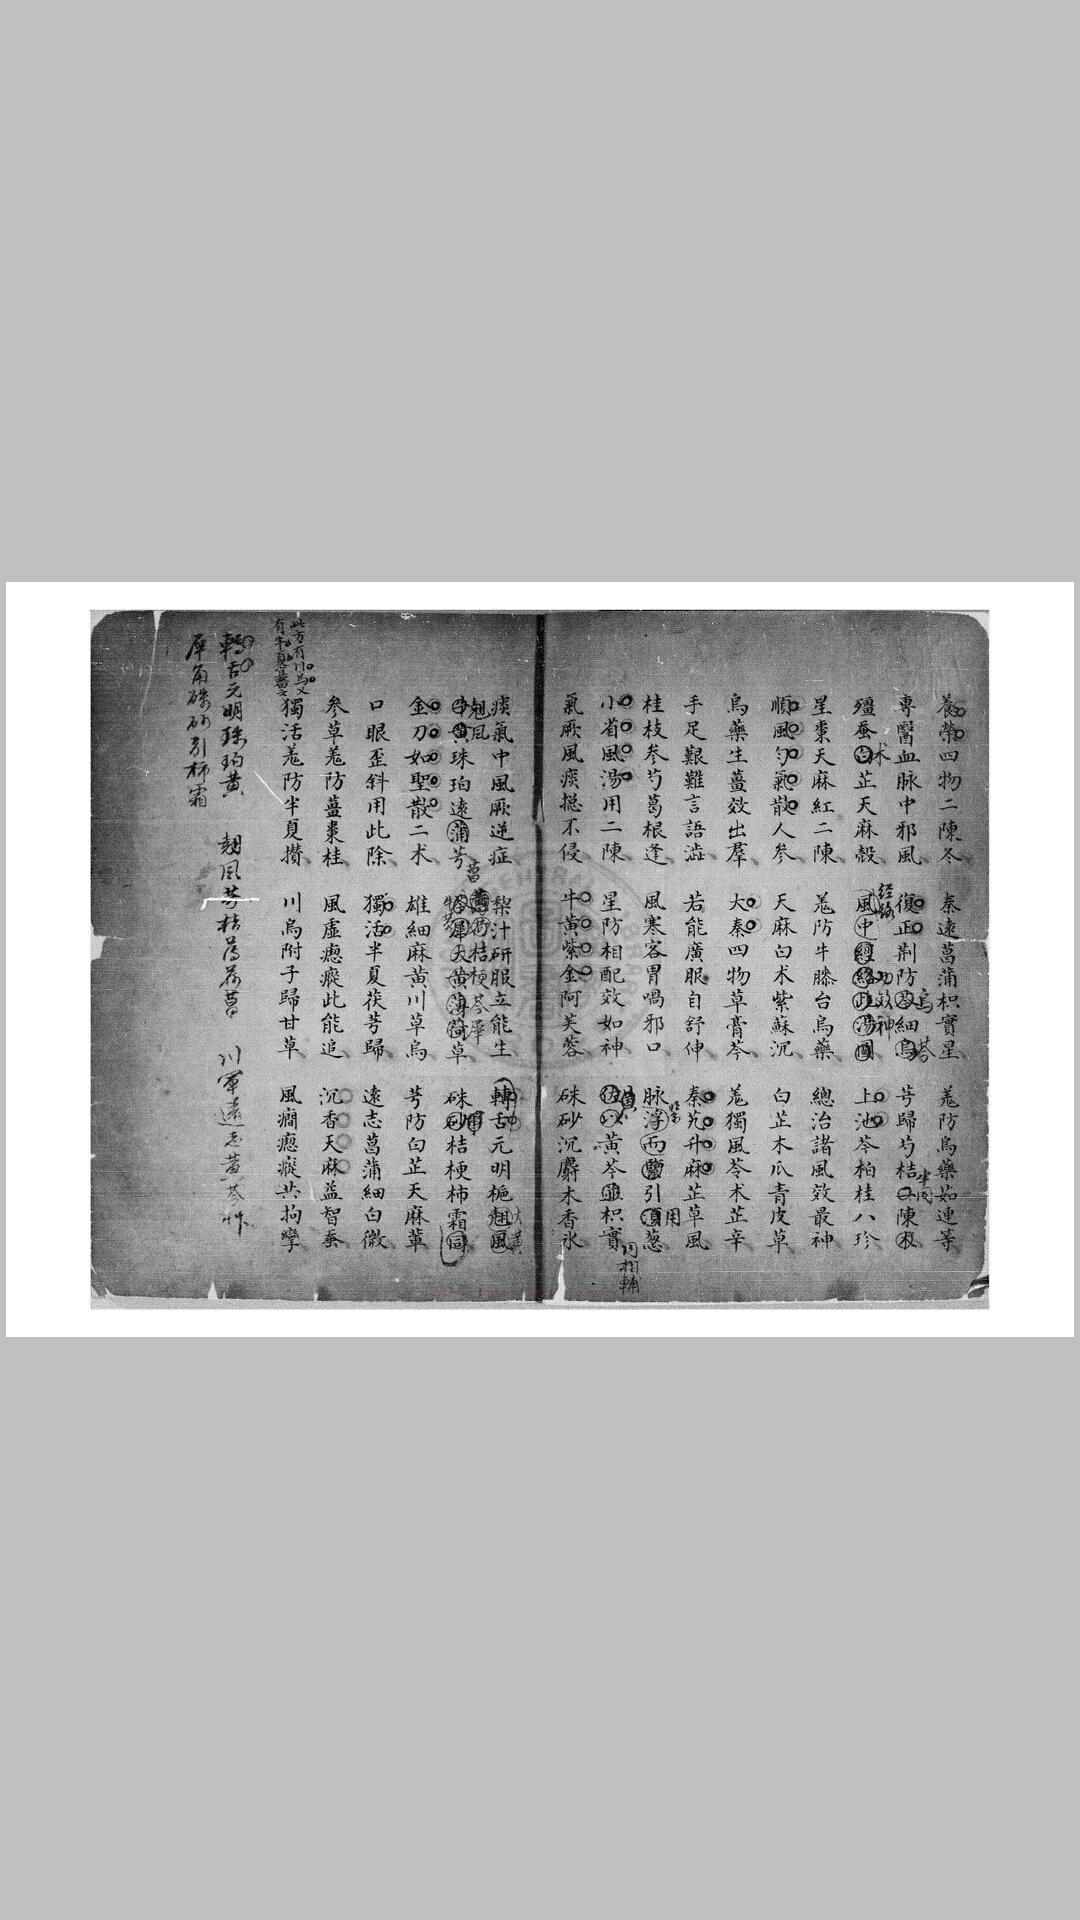 養榮四物二陳冬 秦遠菖蒲枳實星 羌防烏藥茹連等
專醫血脉中邪風 復正荆防苓細烏 芎歸芍桔陳
殭蚕白芷天麻殼 風中經絡 湯 上池芩柏桂八珍
星棗天麻紅二陳 羌防牛膝台烏藥 總治諸風效最神
順風勻氣散人參 天麻白术紫蘇沉 白芷木瓜青皮草
烏藥生薑效出群 大秦四物草膏芩 羌獨風苓术芷辛
手足艱難言語澁 若能廣服自舒伸 秦艽升麻芷草風
桂枝參芍葛根逢 風寒客胃喎邪口 脉浮 引 葱
小省風湯用二陳 星防相配效如神 黃芩 枳實
同相輔
氣厥風痰摠不侵 牛黃紫金阿芙蓉 硃砂沉麝木香氷
痰氣中風厥逆症 梨汁研服立能生 轉舌元明梔翹風
翹风
珠珀遠蒲芎 犀天黃薄荷草 硃砂桔梗柿霜同
金刀如聖散二术 雄細麻黃川草烏 芎防白芷天麻葷
口眼歪斜用此除 獨活半夏茯芎歸 遠志菖蒲細白微
參草羌防薑棗桂 風虛瘛瘲此能追 沉香天麻益智蚕
獨活羌防半夏攢 川烏附子歸甘草 風癎瘛瘲共拘攣
此方有川烏又
有半夏
轉舌元明珠珀黃 翹风芎桔薄荷菖 川軍遠志黃芩
犀角硃砂引柿霜